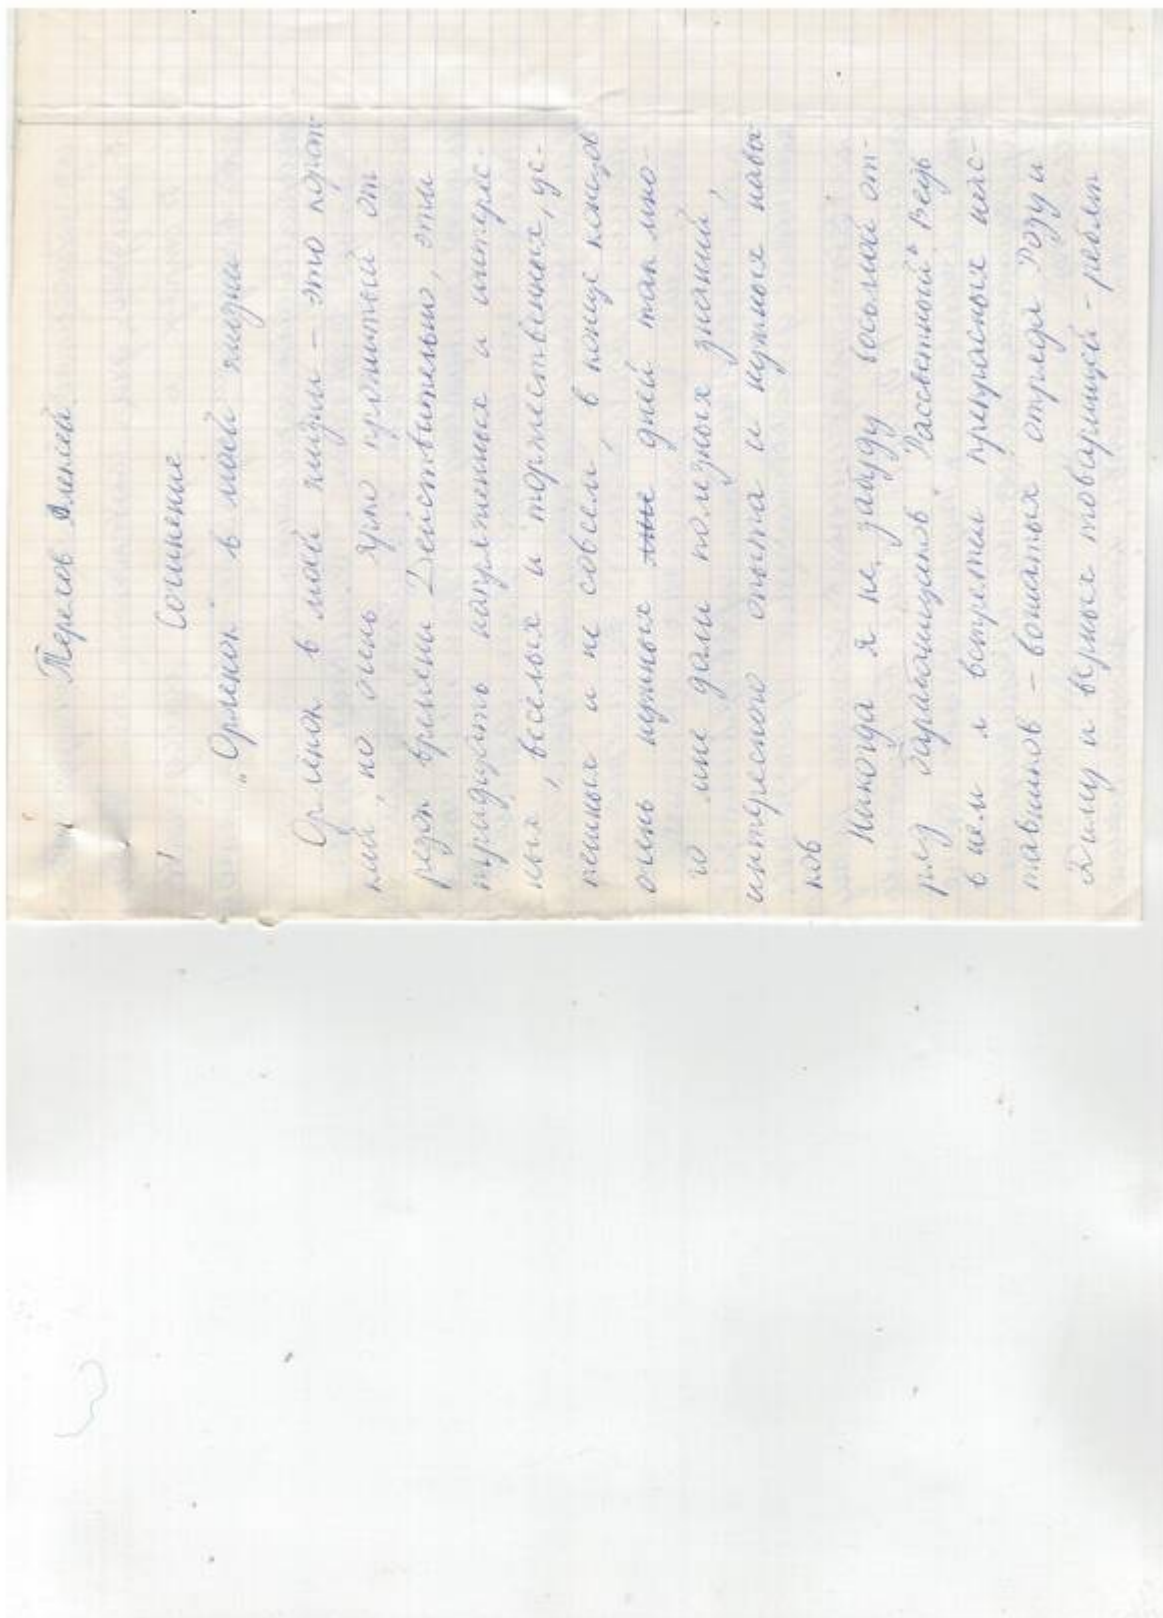 Терсов Алексей
Сочинение
„Орленок" в моей жизни
Орленок в моей жизни – это корот-
кий, но очень ярко прожитый от
резок времени Действительно, эти
тридцать напряженных и интерес-
ных, веселых и торжественных, ус-
пешных и не совсем, в конце концов
очень нужных дней так мно-
го мне дали полезных знаний,
интересного опыта и нужных навы
ков
Никогда я не забуду восьмой от-
ряд барабанщиков „Рассветный" Ведь
в нём я встретил прекрасных нас-
тавников – вожатых отряда Розу и
Диму и верных товарищей – ребят